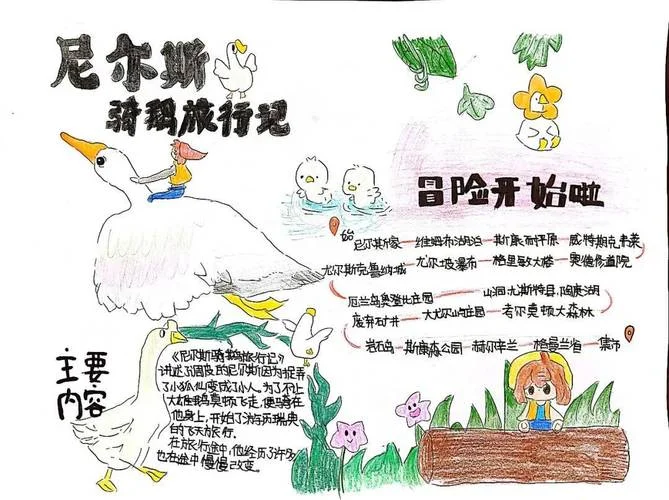 尼尔斯
骑鹅旅行记
冒险开始啦
始
尼尔斯家—维姆布湖泊—斯康耐平原—威特斯克弗莱
尤尔斯克鲁纳城 尤尔坡瀑布—格里敏大楼—奥德修道院
厄兰岛奥登比庄园—山洞尤斯特县,陶康湖
废弃石矿井—大尤尔屿庄园—考尔莫顿大森林
岩石岛—斯康森公园—赫尔辛兰—格曼兰省—集市
主要
内容
《尼尔斯骑鹅旅行记》
讲述了调皮的尼尔斯因为捉弄
了小狐仙变成了小人。为了不让
大雄鹅莫顿飞走,便骑在
他身上,开始了游历瑞典
的飞天旅行。
在旅行途中,他经历了许多
也在途中慢慢改变。